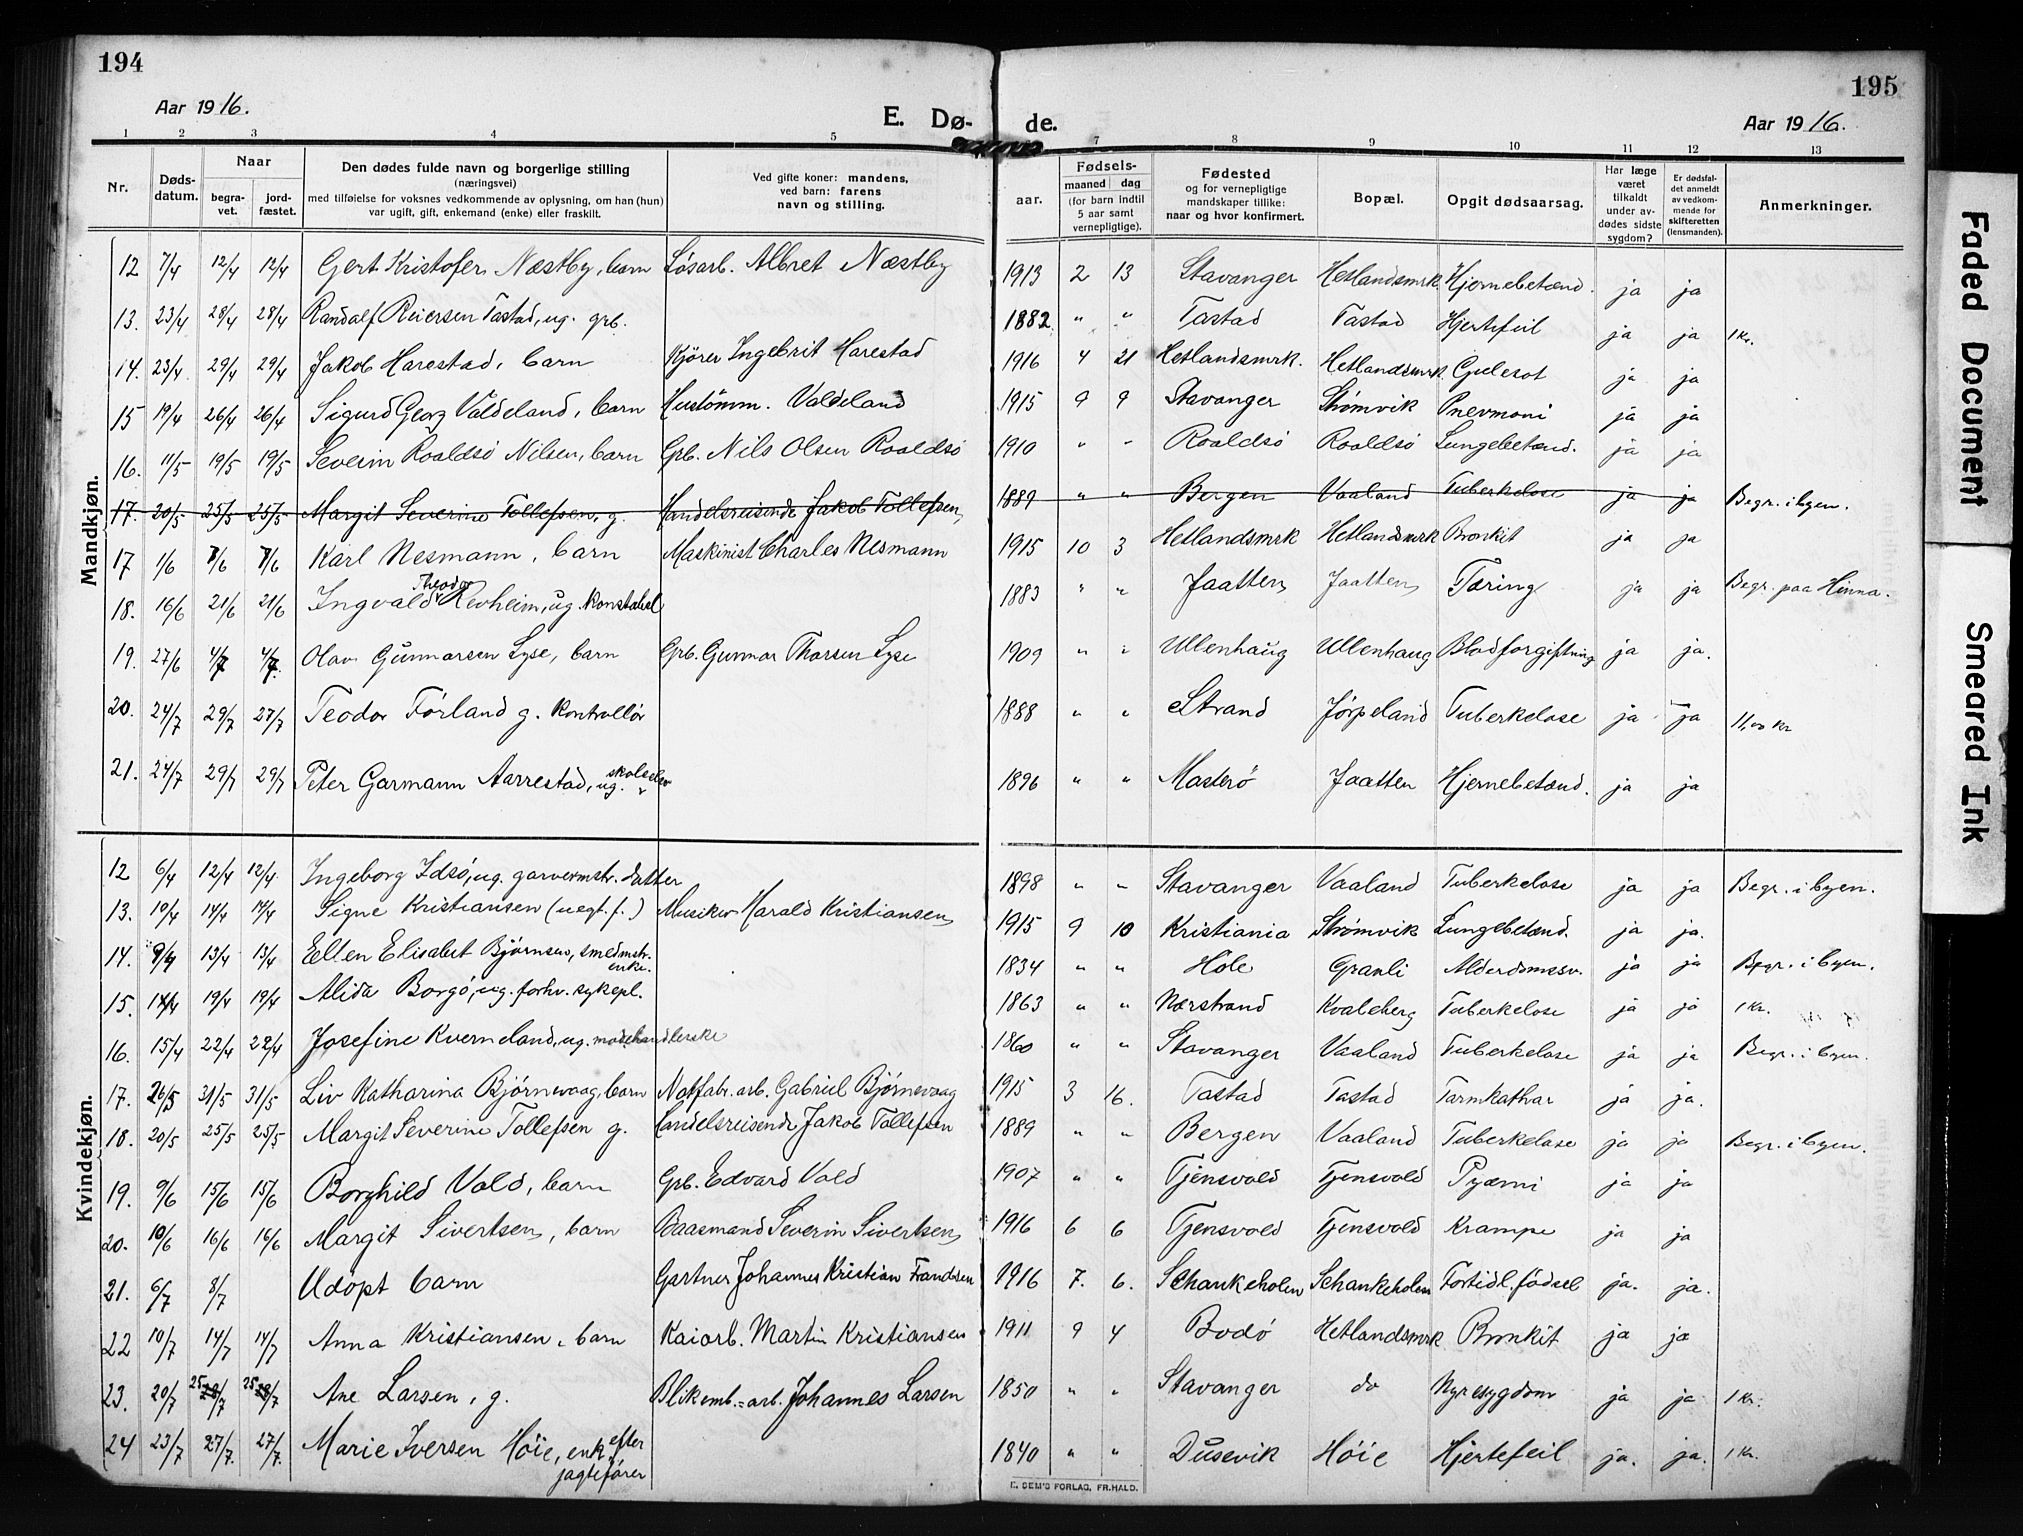 194
195
Aar 1916.
E. Dø-
de.
Aar 1916.
1 2 3 4 5 7 8 9 10 11 12 13
Nr.
Døds-
datum.
Naar
begra-
vet.
jord-
fæstet.
Den dødes fulde navn og borgerlige stilling
(næringsvei)
med tilføielse for voksnes vedkommende av oplysning, om han (hun)
var ugift, gift, enkemand (enke) eller fraskilt.
Ved gifte koner: mandens,
ved barn: farens
navn og stilling.
Fødsels-
aar.
maaned dag
(for barn indtil
5 aar samt
vernepligtige).
Fødested
og for vernepligtige
mandskaper tillike:
naar og hvor konfirmert.
Bopæl.
Opgit dødsaarsag.
Har læge
været
tilkaldt
under av-
dødes sidste
sygdom?
Er dødsfal-
det anmeldt
av vedkom-
mende for
skifteretten
(lensmanden).
Anmerkninger.
Mandkjøn.
12 7/4 12/4 12/4 Gert Kristofer Næstby, barn Løsarb. Albret Næstby 1913 2 13 Stavanger Hetlandsmrk. Hjernebetænd. ja ja
13. 23/4 28/4 28/4 Randalf Reiersen Tastad, ug. grb. 1882 " " Tastad Tastad Hjertefeil ja ja 1 kr.
14. 23/4 29/4 29/4 Jakob Harestad, barn Kjører Ingebrit Harestad 1916 4 21 Hetlandsmrk. Hetlandsmrk. Gulesot ja ja
15 19/4 26/4 26/4 Sigurd Georg Valdeland, barn Hustømm. Valdeland 1915 9 9 Stavanger Strømvik Pnevmoni ja ja
16. 11/5 19/5 19/5 Severin Roaldsø Nilsen, barn Grb. Nils Olsen Roaldsø 1910 " " Roaldsø Roaldsø Lungebetænd. ja ja
17. 20/5 25/5 25/5 Margit Severine Tollefsen, g. Handelsreisende Jakob Tollefsen, 1889 " " Bergen Vaaland Tuberkelose ja ja Begr. i byen.
17 1/6 7/6 7/6 Karl Nesmann, barn Maskinist Charles Nesmann 1915 10 3 Hetlandsmrk Hetlandsmrk Bronkit ja ja
18. 16/6 21/6 21/6 Ingvald Theodor Revheim, ug. konstabel 1883 " " Jaatten Jaatten Tæring ja ja Begr. paa Hinna.
19. 27/6 4/7 4/7. Olav Gunnarsen Lyse, barn Grb. Gunnar Thorsen Lyse 1909 " " Ullenhaug Ullenhaug Blodforgiftning ja ja.
20. 24/7 29/7 27/7 Teodor Førland g. kontrollør 1888 " " Strand Jørpeland Tuberkelose ja ja 11,00 kr
21. 24/7 29/7 29/7 Peter Garmann Aarrestad, ug. skoleelev 1896 " " Mosterø Jaatten Hjernebetænd. ja ja
Kvindekjøn.
12 6/4 12/4 12/4 Ingeborg Idsø, ug. garvermstr. datter 1898 " " Stavanger Vaaland Tuberkelose ja ja Begr. i byen.
13. 10/4 14/4 14/4 Signe Kristiansen (uegt. f.) Musiker Harald Kristiansen 1915 9 10 Kristiania Strømvik Lungebetænd. ja ja.
14. 9/4 13/4 13/4 Ellen Elisabet Bjørnsen, smedmstr. enke. 1834 " " Hole Granli Alderdomssv. ja ja Begr. i byen.
15. 14/4 19/4 19/4 Alida Borgø, ug. forhv. sykepl. 1863 " " Nærstrand Kvaleberg Tuberkelose ja ja 1 kr.
16. 15/4 22/4 22/4 Josefine Kverneland, ug. modehandlerske 1860 " " Stavanger Vaaland Tuberkelose ja ja Begr. i byen.
17. 26/5 31/5 31/5 Liv Katharina Bjørnevaag, barn Notfabr. arb. Gabriel Bjørnevaag 1915 3 16. Tastad Tastad Tarmkathar ja ja.
18. 20/5 25/5 25/5 Margit Severine Tollefsen g. Handelsreisende Jakob Tollefsen 1889 " " Bergen Vaaland Tuberkelose ja ja Begr. i byen.
19. 9/6 15/6 15/6 Borghild Vold, barn Grb. Edvard Vold 1907 " " Tjensvold Tjensvold Pyæmi ja ja
20. 10/6 16/6 16/6 Margit Sivertsen, barn Baasmand Severin Sivertsen 1916 6 6 Tjensvold Tjensvold Krampe ja ja
21. 6/7 8/7 Udøpt barn Gartner Johannes Kristian Frandsen 1916 7. 6. Schankeholen Schankeholen Fortidl. fødsel ja. ja.
22 10/7 14/7 14/7 Anna Kristiansen, barn Kaiarb. Martin Kristiansen 1911 9 4 Bodø Hetlandsmrk Bronkit ja ja
23. 20/7 25/7 25/7 Ane Larsen, g. Blikemb.=arb. Johannes Larsen 1850 " " Stavanger do Nyresygdom ja ja 1 kr.
24 23/7 27/7. 27/7. Marie Iversen Høie, enke efter jagtefører 1840 " " Dusevik Høie Hjertefeil ja. ja. 1 kr.
E. SEM'S FORLAG, FR.HALD.
Faded Document
Smeared Ink